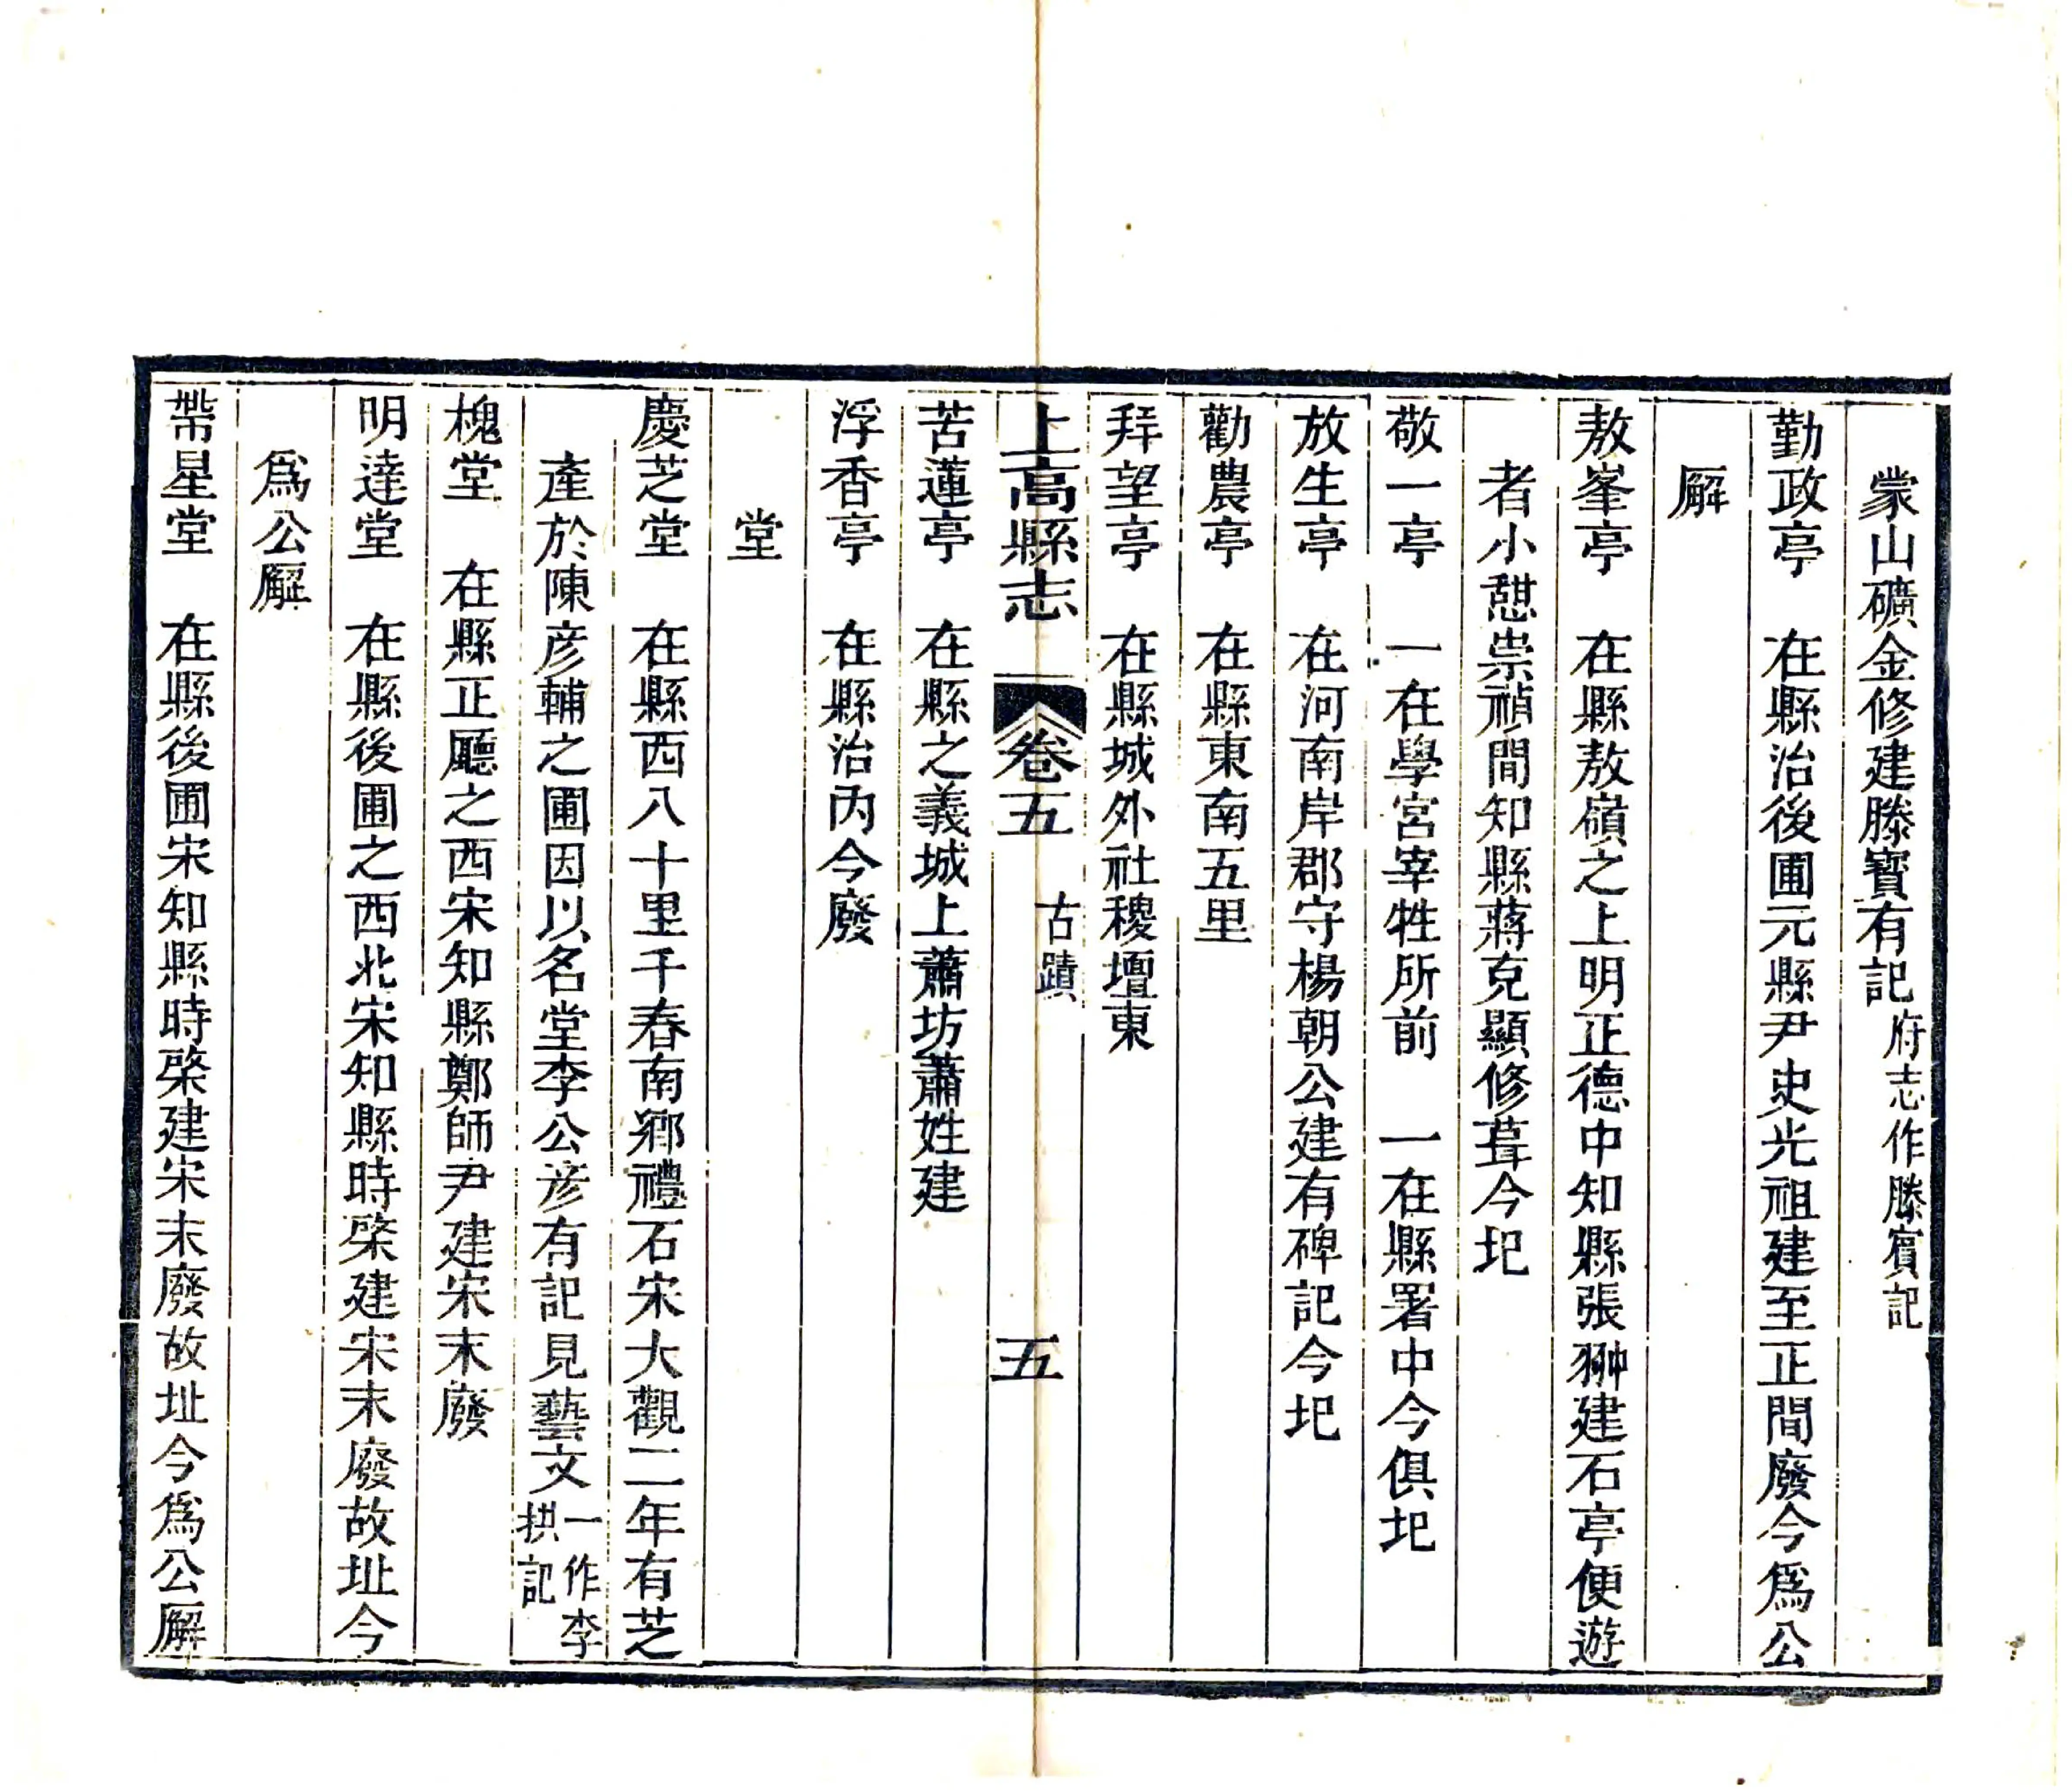 蒙山礦金修建滕寳有記府志作滕賔記
勤政亭　在縣治後圃元縣尹史光祖建至正間廢今爲公
廨
敖峯亭　在縣敖嶺之上明正德中知縣張翀建石亭便遊
者小憇祟禎間知縣蔣克顯修葺今圯
敬一亭　一在學宮宰牲所前　一在縣署中今俱圯
放生亭　在河南岸郡守楊朝公建有碑記今圯
勸農亭　在縣東南五里
拜望亭　在縣城外社稷壇東
上高縣志　卷五　古蹟　五
苦蓮亭　在縣之義城上蕭坊蕭姓建
浮香亭　在縣治内今廢
堂
慶芝堂　在縣西八十里千春南鄉禮石宋大觀二年有芝
產於陳彦輔之圃因以名堂李公彦有記見藝文一作李拱記
槐堂　在縣正廳之西宋知縣鄭師尹建宋末廢
明達堂　在縣後圃之西北宋知縣時棨建宋末廢故址今
爲公廨
帶星堂　在縣後圃宋知縣時棨建宋末廢故址今爲公廨